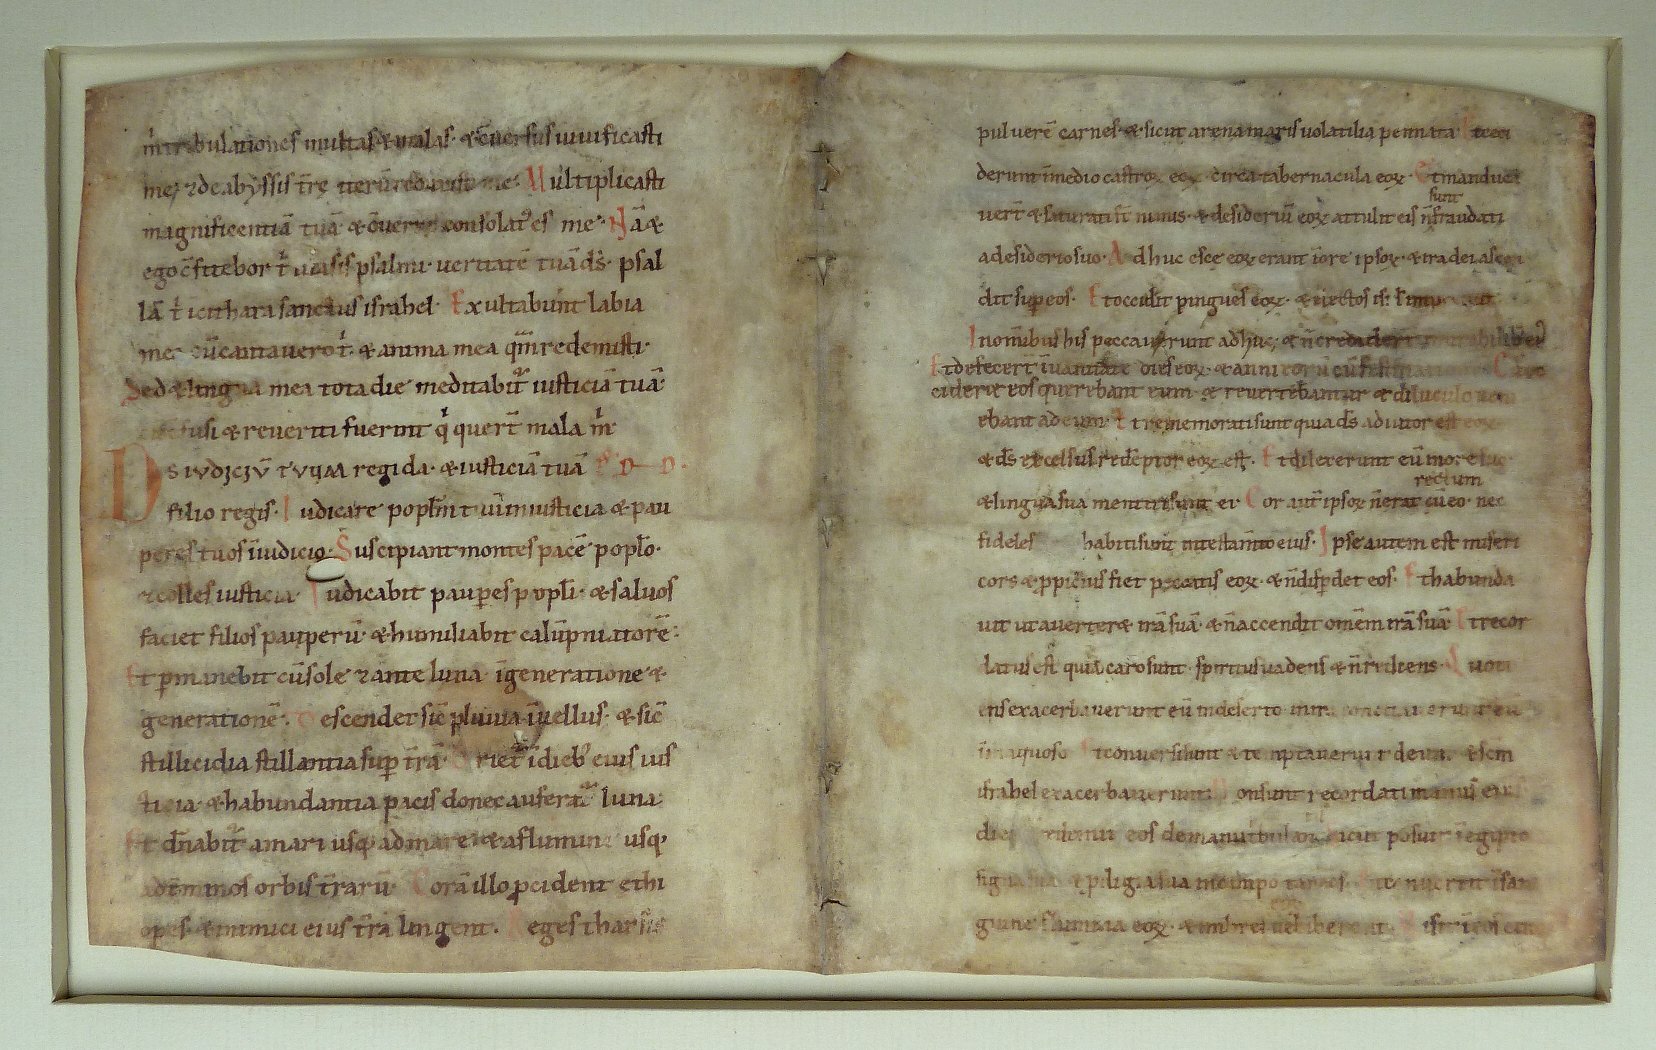 m̄ tribulationes multas & malas· & c̄uersus uiuificasti
me; & de abyssis tr̄ę iterū me· Multiplicasti
magnificentiā tuā & c̄uersus consolat' es me· Nā &
ego c̄fitebor t̄ uasis psalmi· ueritatē tuā d̄s· psal
lā t̄ i cithara sanctus israhel· Exultabunt labia
mea cū cantauero t̄· & anima mea quā redemisti·
Sed & lingua mea tota die meditabit̄ iusticiā tuā·
fusi & reueriti fuerint q̄ quer̄t mala m̄
DS IVDICIV̄ TVVM regi da· & iusticiā tuā
filio regis· Iudicare popl̄m tuū in iusticia & pau
peres tuos ī iudicio· Suscipiant montes pacē popl̄o·
& colles iusticia· Iudicabit pauperes popl̄i· & saluos
faciet filios pauperū· & humiliabit calūpniatorē·
Et p̄manebit cū sole & ante luna īgeneratione &
generationē· Descendet sic̄ pluuia ī uellus· & sic̄
stillicidia stillantia sup̄ tr̄ā· Oriet̄ ī dieb; eius ius
ticia· & habundantia pacis donec auferat̄ luna
Et dn̄abit̄ a mari usq; ad mare & a flumine usq;
ad t̄minos orbis tr̄arū· Corā illo pcident ethi
opes· & inimici eius tr̄ā lingent· Reges tharsis
puluerē carnes· & sicut arena maris uolatilia pennata· Et ceci
derunt ī medio castroꝝ eoꝝ circa tabernacula eoꝝ· Et manduca
sunt
uer̄t & saturati st̄ nimis· & desideriū eoꝝ attulit eis n̄ fraudati
a desiderio suo· Adhuc esce eoꝝ erant ī ore ipsoꝝ· & ira dei ascen
dit sup̄ eos· Et occidit pingues eoꝝ· & electos isrl̄
In om̄ibus his peccauerunt adhuc; & n̄ crediderunt
Et defecer̄t ī uanitate dies eoꝝ· & anni eorū cū festinatione· Cū oc
cideret eos querebant eum· & reuertebantur & diluculo ueni
ebant ad eum· Et rememorati sunt quia d̄s adiutor est eoꝝ
& d̄s excelsus redēptor eoꝝ est· Et dilexerunt eū ī ore suo
rectum
& lingua sua mentiti sunt ei· Cor aut̄ ipsoꝝ n̄ erat cū eo· nec
fideles habiti sunt ī testam̄to eius· Ipse autem est miseri
cors & ppicius fiet peccatis eoꝝ· & n̄ disp̄det eos· Et habunda
uit ut auerteret irā suā· & n̄ accendit om̄em irā suā· Et recor
datus est quia caro sunt· spiritus uadens & n̄ rediens· Quoti
ens exacerbauerunt eū in deserto· in ira concitauerunt eū
ī inaquoso Et conuersi sunt & temptauerunt deum· & sc̄m
israhel exacerbauerunt· Non sunt recordati manus eius
die redemit eos de manu tribulantis· Sicut posuit ī egipto
signa sua & p̄digia sua in campo taneos· Et conuertit ī san
guine flumina eoꝝ· & imbres ne biberent· Misit ī eos